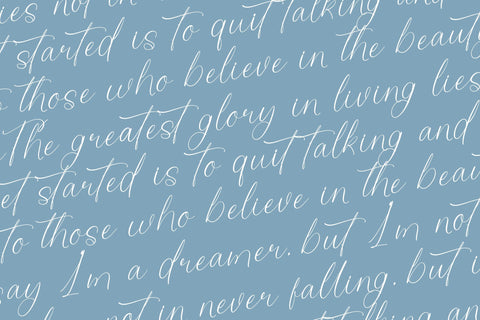 lies not in
et started is to quit talking and
s those who believe in the beauty
The greatest glory in living lies
et started is to quit talking and
to those who believe in the beau
say I'm a dreamer. but I'm not
not in never falling. but i
talking and